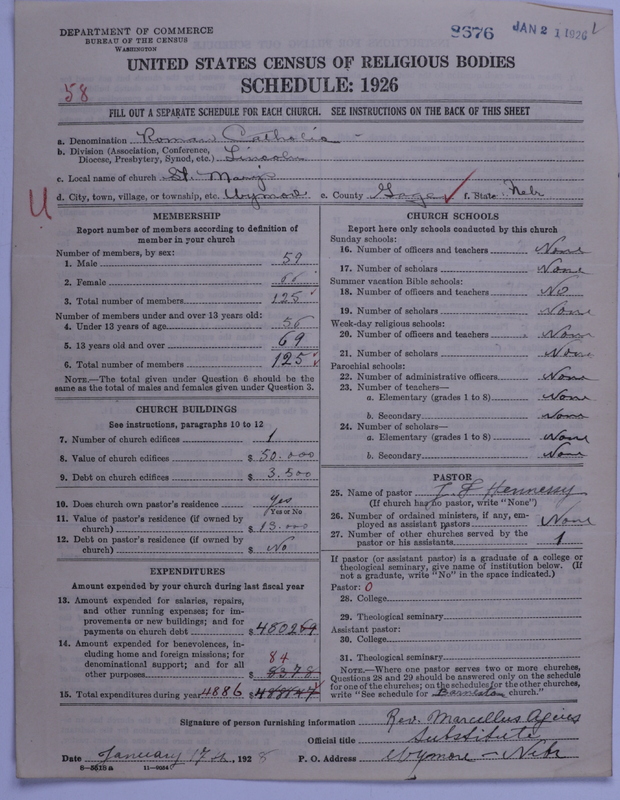 DEPARTMENT OF COMMERCE
BUREAU OF THE CENSUS
WASHINGTON
8676 JAN 21 1926
UNITED STATES CENSUS OF RELIGIOUS BODIES
SCHEDULE: 1926
58
FILL OUT A SEPARATE SCHEDULE FOR EACH CHURCH. SEE INSTRUCTIONS ON THE BACK OF THIS SHEET
a. Denomination Roman Catholic
b. Division (Association, Conference,
Diocese, Presbytery, Synod, etc.) Lincoln
c. Local name of church St. Mary's
d. City, town, village, or township, etc. Wymore e. County Gage f. State Nebr
U
MEMBERSHIP
Report number of members according to definition of
member in your church
Number of members, by sex:
1. Male 59
2. Female 66
3. Total number of members 125
Number of members under and over 13 years old:
4. Under 13 years of age 56
5. 13 years old and over 69
6. Total number of members 125
NOTE.—The total given under Question 6 should be the
same as the total of males and females given under Question 3.
CHURCH BUILDINGS
See instructions, paragraphs 10 to 12
7. Number of church edifices 1
8. Value of church edifices $ 50.000
9. Debt on church edifices $ 3.500
10. Does church own pastor's residence? Yes
Yes or No
11. Value of pastor's residence (if owned by
church) $ 13.000
12. Debt on pastor's residence (if owned by
church) $ No
EXPENDITURES
Amount expended by your church during last fiscal year
13. Amount expended for salaries, repairs,
and other running expenses; for im-
provements or new buildings; and for
payments on church debt $ 4502
14. Amount expended for benevolences, in-
cluding home and foreign missions; for
denominational support; and for all
other purposes $ 84
15. Total expenditures during year 4886 $
CHURCH SCHOOLS
Report here only schools conducted by this church
Sunday schools:
16. Number of officers and teachers None
17. Number of scholars None
Summer vacation Bible schools:
18. Number of officers and teachers No
19. Number of scholars None
Week-day religious schools:
20. Number of officers and teachers None
21. Number of scholars None
Parochial schools:
22. Number of administrative officers None
23. Number of teachers—
a. Elementary (grades 1 to 8) None
b. Secondary None
24. Number of scholars—
a. Elementary (grades 1 to 8) None
b. Secondary None
PASTOR
25. Name of pastor Hennessy
(If church has no pastor, write "None")
26. Number of ordained ministers, if any, em-
ployed as assistant pastors None
27. Number of other churches served by the
pastor or his assistants 1
If pastor (or assistant pastor) is a graduate of a college or
theological seminary, give name of institution below. (If
not a graduate, write "No" in the space indicated.)
Pastor: 0
28. College
29. Theological seminary
Assistant pastor:
30. College
31. Theological seminary
NOTE.—Where one pastor serves two or more churches,
Questions 28 and 29 should be answered only on the schedule
for one of the churches; on the schedules for the other churches,
write "See schedule for Barneston church."
Signature of person furnishing information Rev. Marcellus
Official title Substitute
Date January 17th, 192 P. O. Address Wymore - Nebr
8—5518a 11—9054